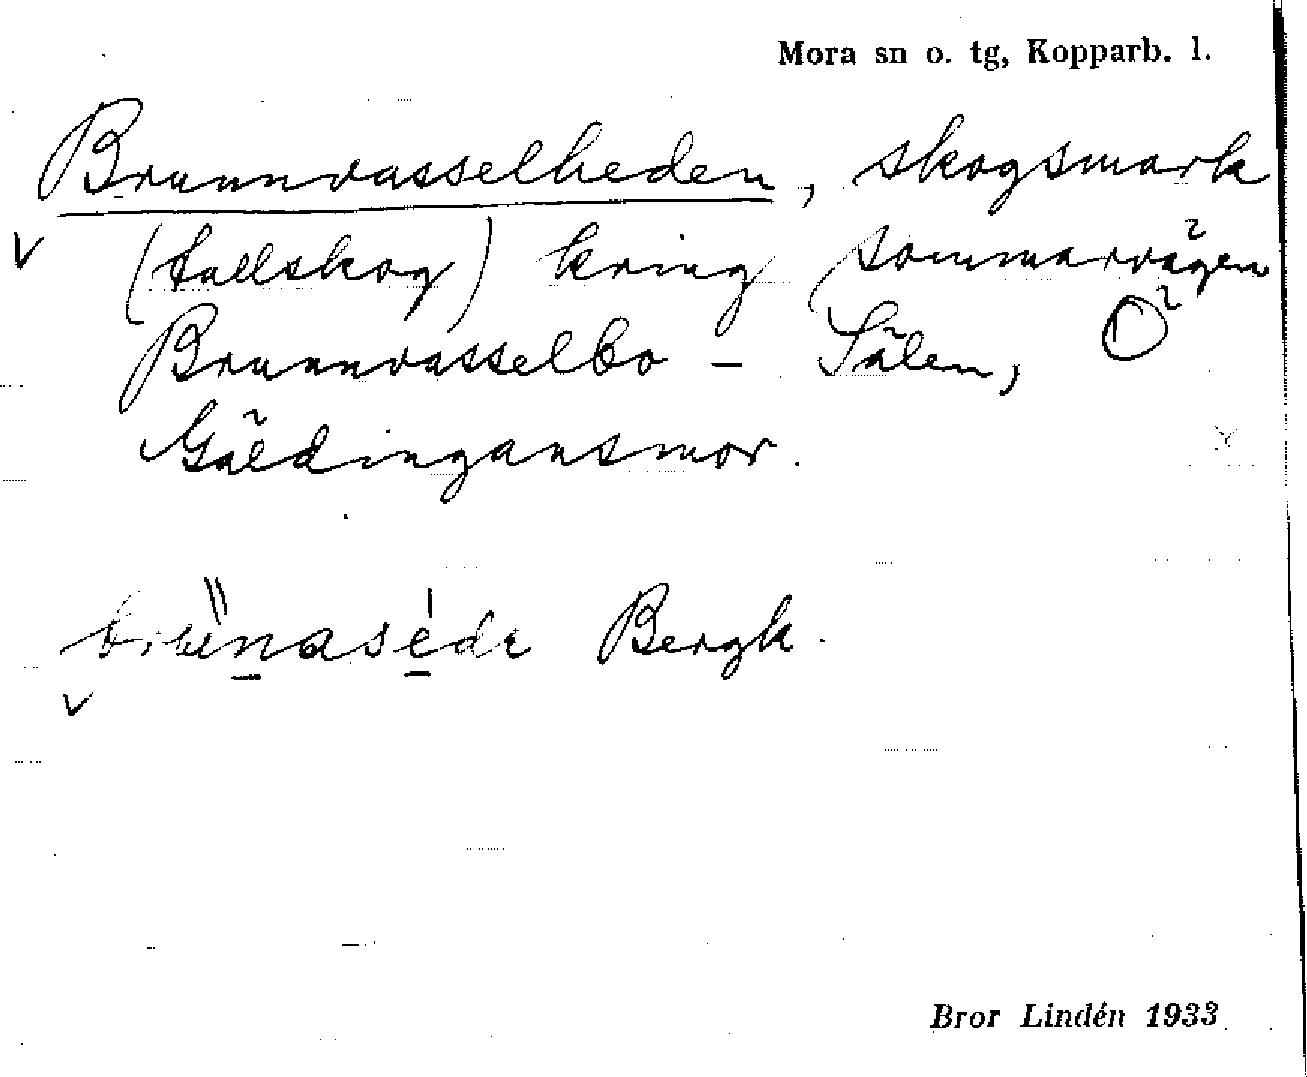 Mora sn o. tg, Kopparb. l.
Brunnvasselheden, skogsmark
(tallskog) kring sommarvägen
Brunnvasselbo – Sälen,
Gäldingansmor.
Bergk.
Bror Lindén 1933